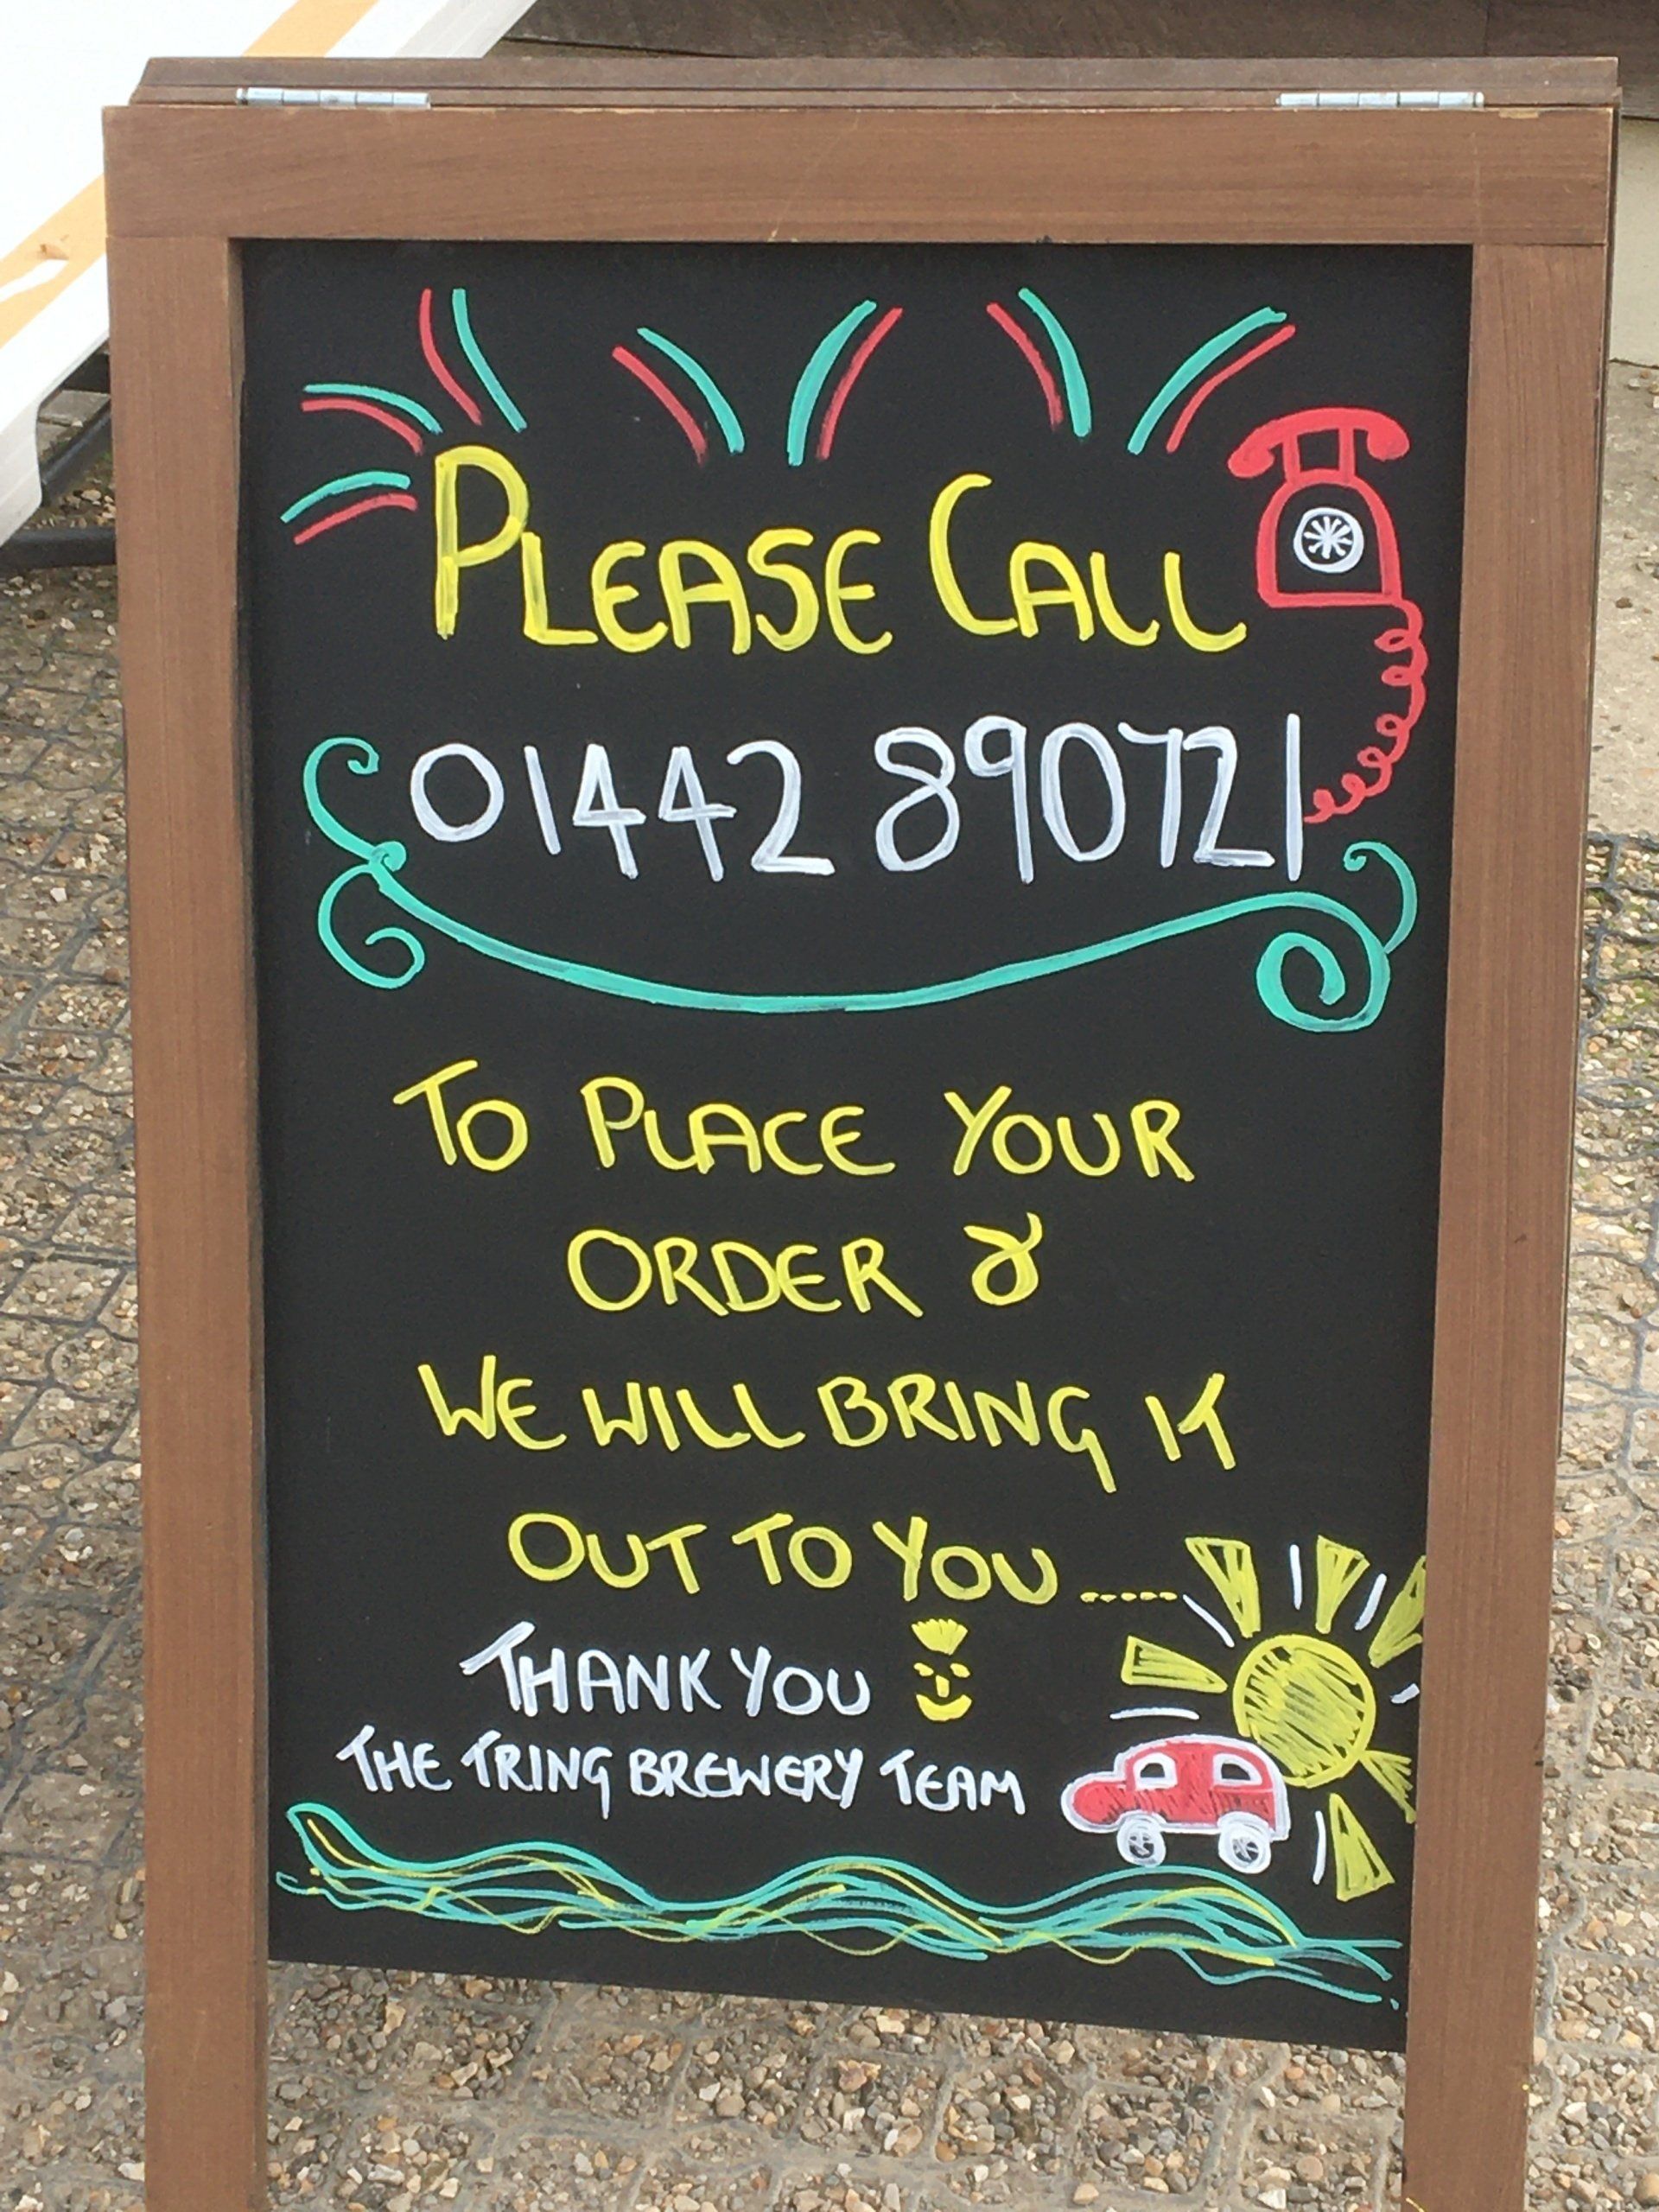 PLEASE CALL
01442 890721
TO PLACE YOUR
ORDER &
WE WILL BRING IT
OUT TO YOU ......
THANK YOU
THE TRING BREWERY TEAM